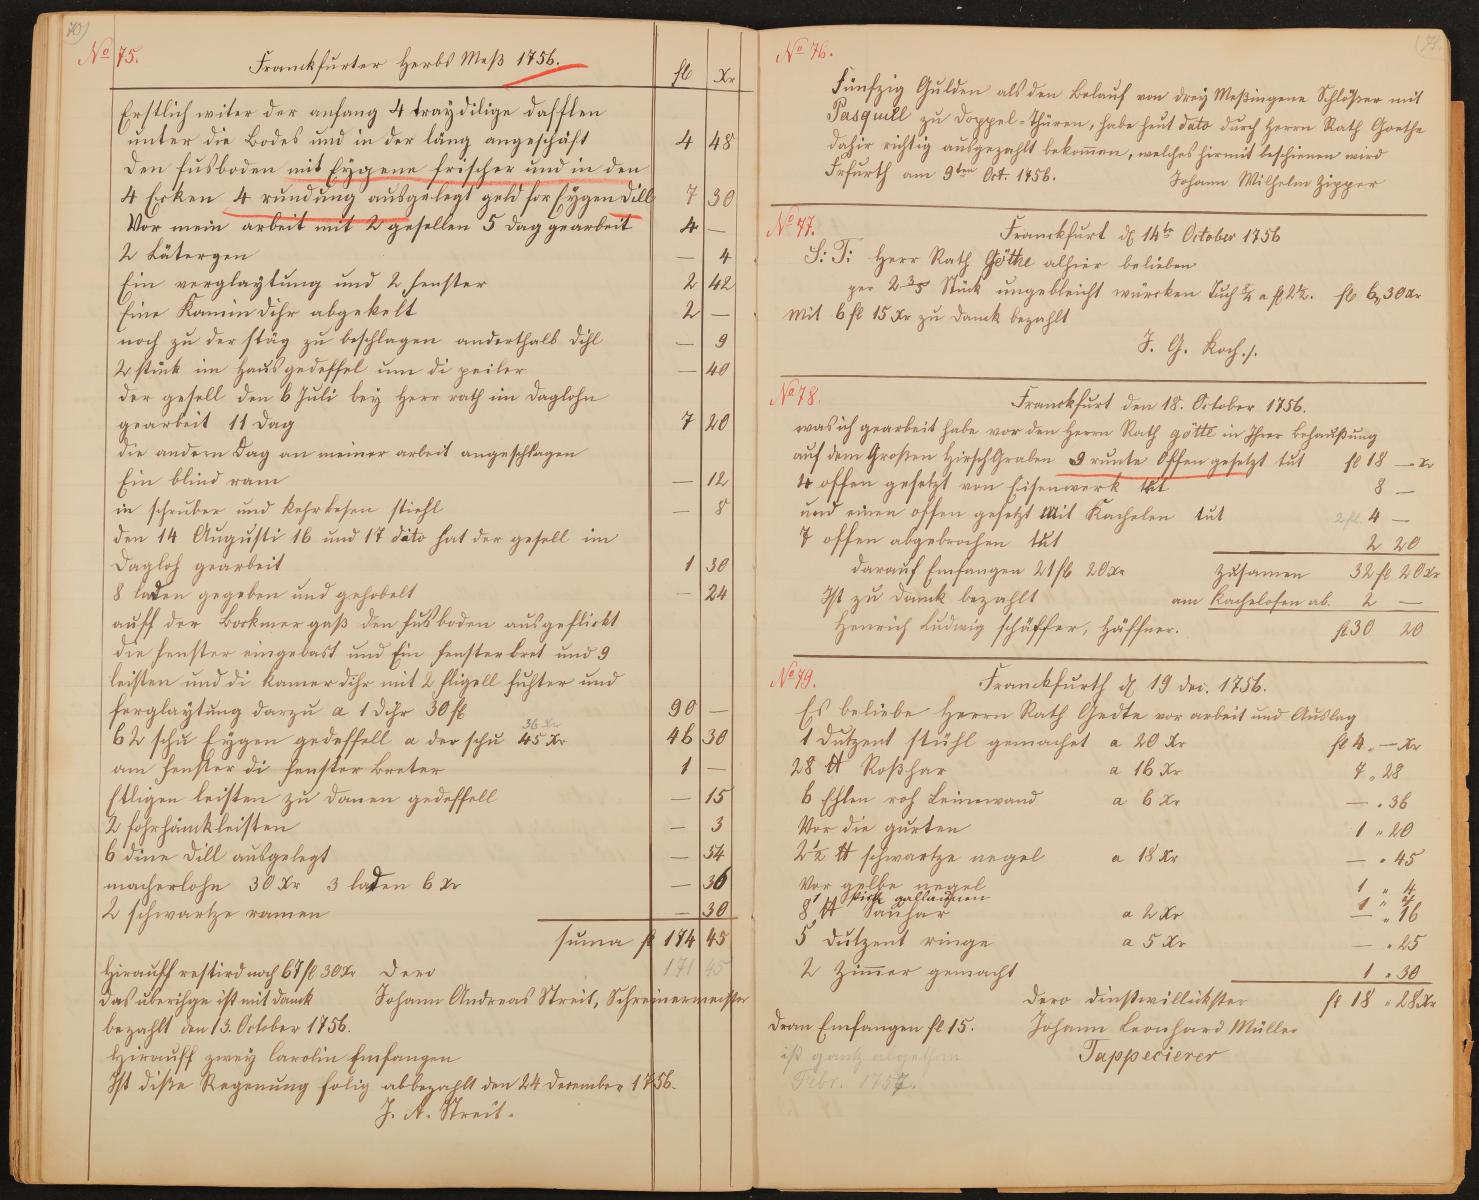 70)
No 75.
Franckfurter Herbs Meß 1756.
fl Xr
Erstlich witer der anfang 4 traÿdilige dafften
unter die Bodes und in der läng angeschäft 4 48
den fusboden mit Eygene frischer und in den
4 Ecken 4 rundung ausgelegt geld for Eygen Dill 7 30
Vor mein arbeit mit 2 gesellen 5 Dag gearbeit 4 —
2 Lätergen — 4
Ein verglaytung und 2 fenster 2 42
Eine Kamin Dihr abgekelt 2 —
noch zu der stäg zu beschlagen anderthalb Dihl — 9
2 stück im Hausgedeffel um di peiler — 40
der gesell den 6 Juli bey Herr rath im Daglohn
gearbeit 11 Dag 7 20
die andern Dag an meiner arbeit angeschlagen
Ein blind ram — 12
in schruber und Kehrbesen stiehl — 8
den 14 Augusti 16 und 17 dito hat der gesell im
Dagloh gearbeit 1 30
8 laden gegeben und gehobelt — 24
auff der Bockmer gaß den fusboden ausgeflickt
die fenster eingebast und Ein fensterbret und 9
leisten und di Kamerdihr mit 2 fligell fuhter und
ferglaytung darzu a 1 Dihr 30 fl 90 —
36 Xr
62 schu Eygen gedeffell a der schu 45 Xr 46 30
am fenster di fenster Breter 1 —
Etligen leisten zu Danen gedeffell — 15
2 forhämkleisten — 3
6 dine Dill ausgelegt — 54
macherlohn 30 Xr 3 laden 6 Xr — 36
2 schwartze ramen — 30
suma fl 174 45
171 45
Hirauff restird noch 67 fl 30 Xr Dero
das überihge ist mit danck Johann Andreas Streit, Schreinermeister
bezahlt den 13. October 1756.
Hirauff zwey Carolin Emfangen
Ist diße Regenung folig abbezahlt den 24 December 1756.
J. A. Streit.
(71.
No 76.
Fünfzig Gulden als den Belauf von dreÿ Meßingene Schlößer mit
Pasquill zu Doppel-Thüren, habe heut dato durch Herrn Rath Goethe
dahir richtig ausgezahlt bekommen, welches hirmit beschienen wird
Erfurth am 9ten Oct. 1756. Johann Wilhelm Zipper
No 77.
Franckfurt d 14te October 1756
S: T: Herr Rath Göthe alhier belieben
per 2 Stück ungebleicht würcken Tuch a fl 2½. fl 6,, 30 Xr
Mit 6 fl 15 Xr zu Danck bezahlt
J. G. Koch./.
No 78.
Franckfurt den 18. October 1756.
was ich gearbeit habe vor den Herrn Rath götte in Ihrer Behaußung
auf dem Großen HirschGraben 9 runte Offen gesetzt tut fl 18 — Xr
4 offen gesetzt von Eisenwerk tut 8 —
und einen offen gesetzt Mit Kachelen tut 2 fl. 4 —
7 offen abgebrochen tut 2 20
darauf Emfangen 21 fl 20 Xr Zusamen 32 fl 20 Xr
Ist zu Danck bezahlt am Kachelofen ab. 2 —
Henrich Ludwig schäffer, Häffner. fl 30 20
No 79.
Franckfurth d 19 dec. 1756.
Es beliebe Herrn Rath Gedte vor arbeit und Auslag
1 Dutzent stühl gemachet a 20 Xr fl 4 „ — Xr
28 ℔ Roßhar a 16 Xr 7 „ 28
6 Ehlen roh Leinewand a 6 Xr — „ 36
Vor die gurten 1 „ 20
2½ ℔ schwartze negel a 18 Xr — „ 45
Vor gelbe negel 1 „ 4
1 stick gallaunen 1 „ 4
8 ℔ Sauhar a 2 Xr — „ 16
5 Dutzent ringe a 5 Xr — „ 25
2 Zimmer gemacht 1 „ 30
Dero dinstwillickster fl 18 „ 28 Xr
Dran Emfangen fl 15. Johann Leonhard Müller
ist gantz abgethan Tappecierer
Febr. 1757.